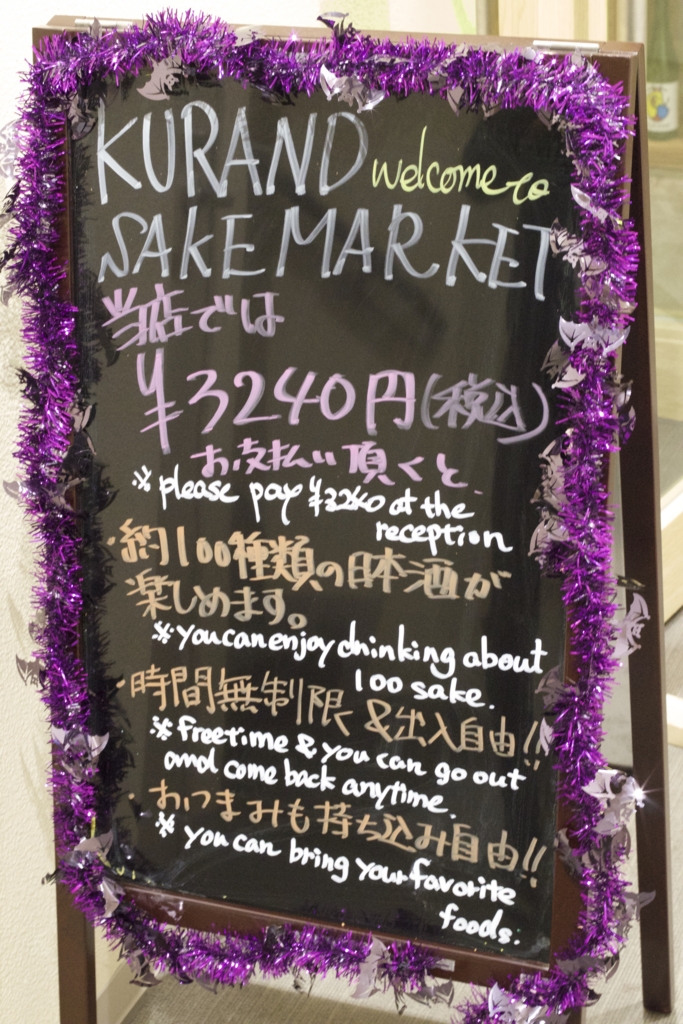 KURAND welcome to
SAKE MARKET
当店では
¥3240円(税込)
お支払い頂くと
※please pay ¥3240 at the
reception
・約100種類の日本酒が
楽しめます。
※you can enjoy drinking about
100 sake.
・時間無制限&出入自由!!
※free time & you can go out
and come back anytime.
・おつまみも持ち込み自由!!
※you can bring your favorite
foods.